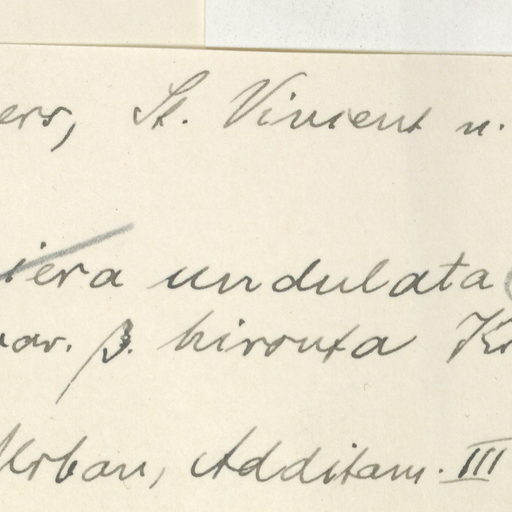 ers, St. Vincent u.
iera undulata
var. β. hirsuta Kr
Urban, Additam. III